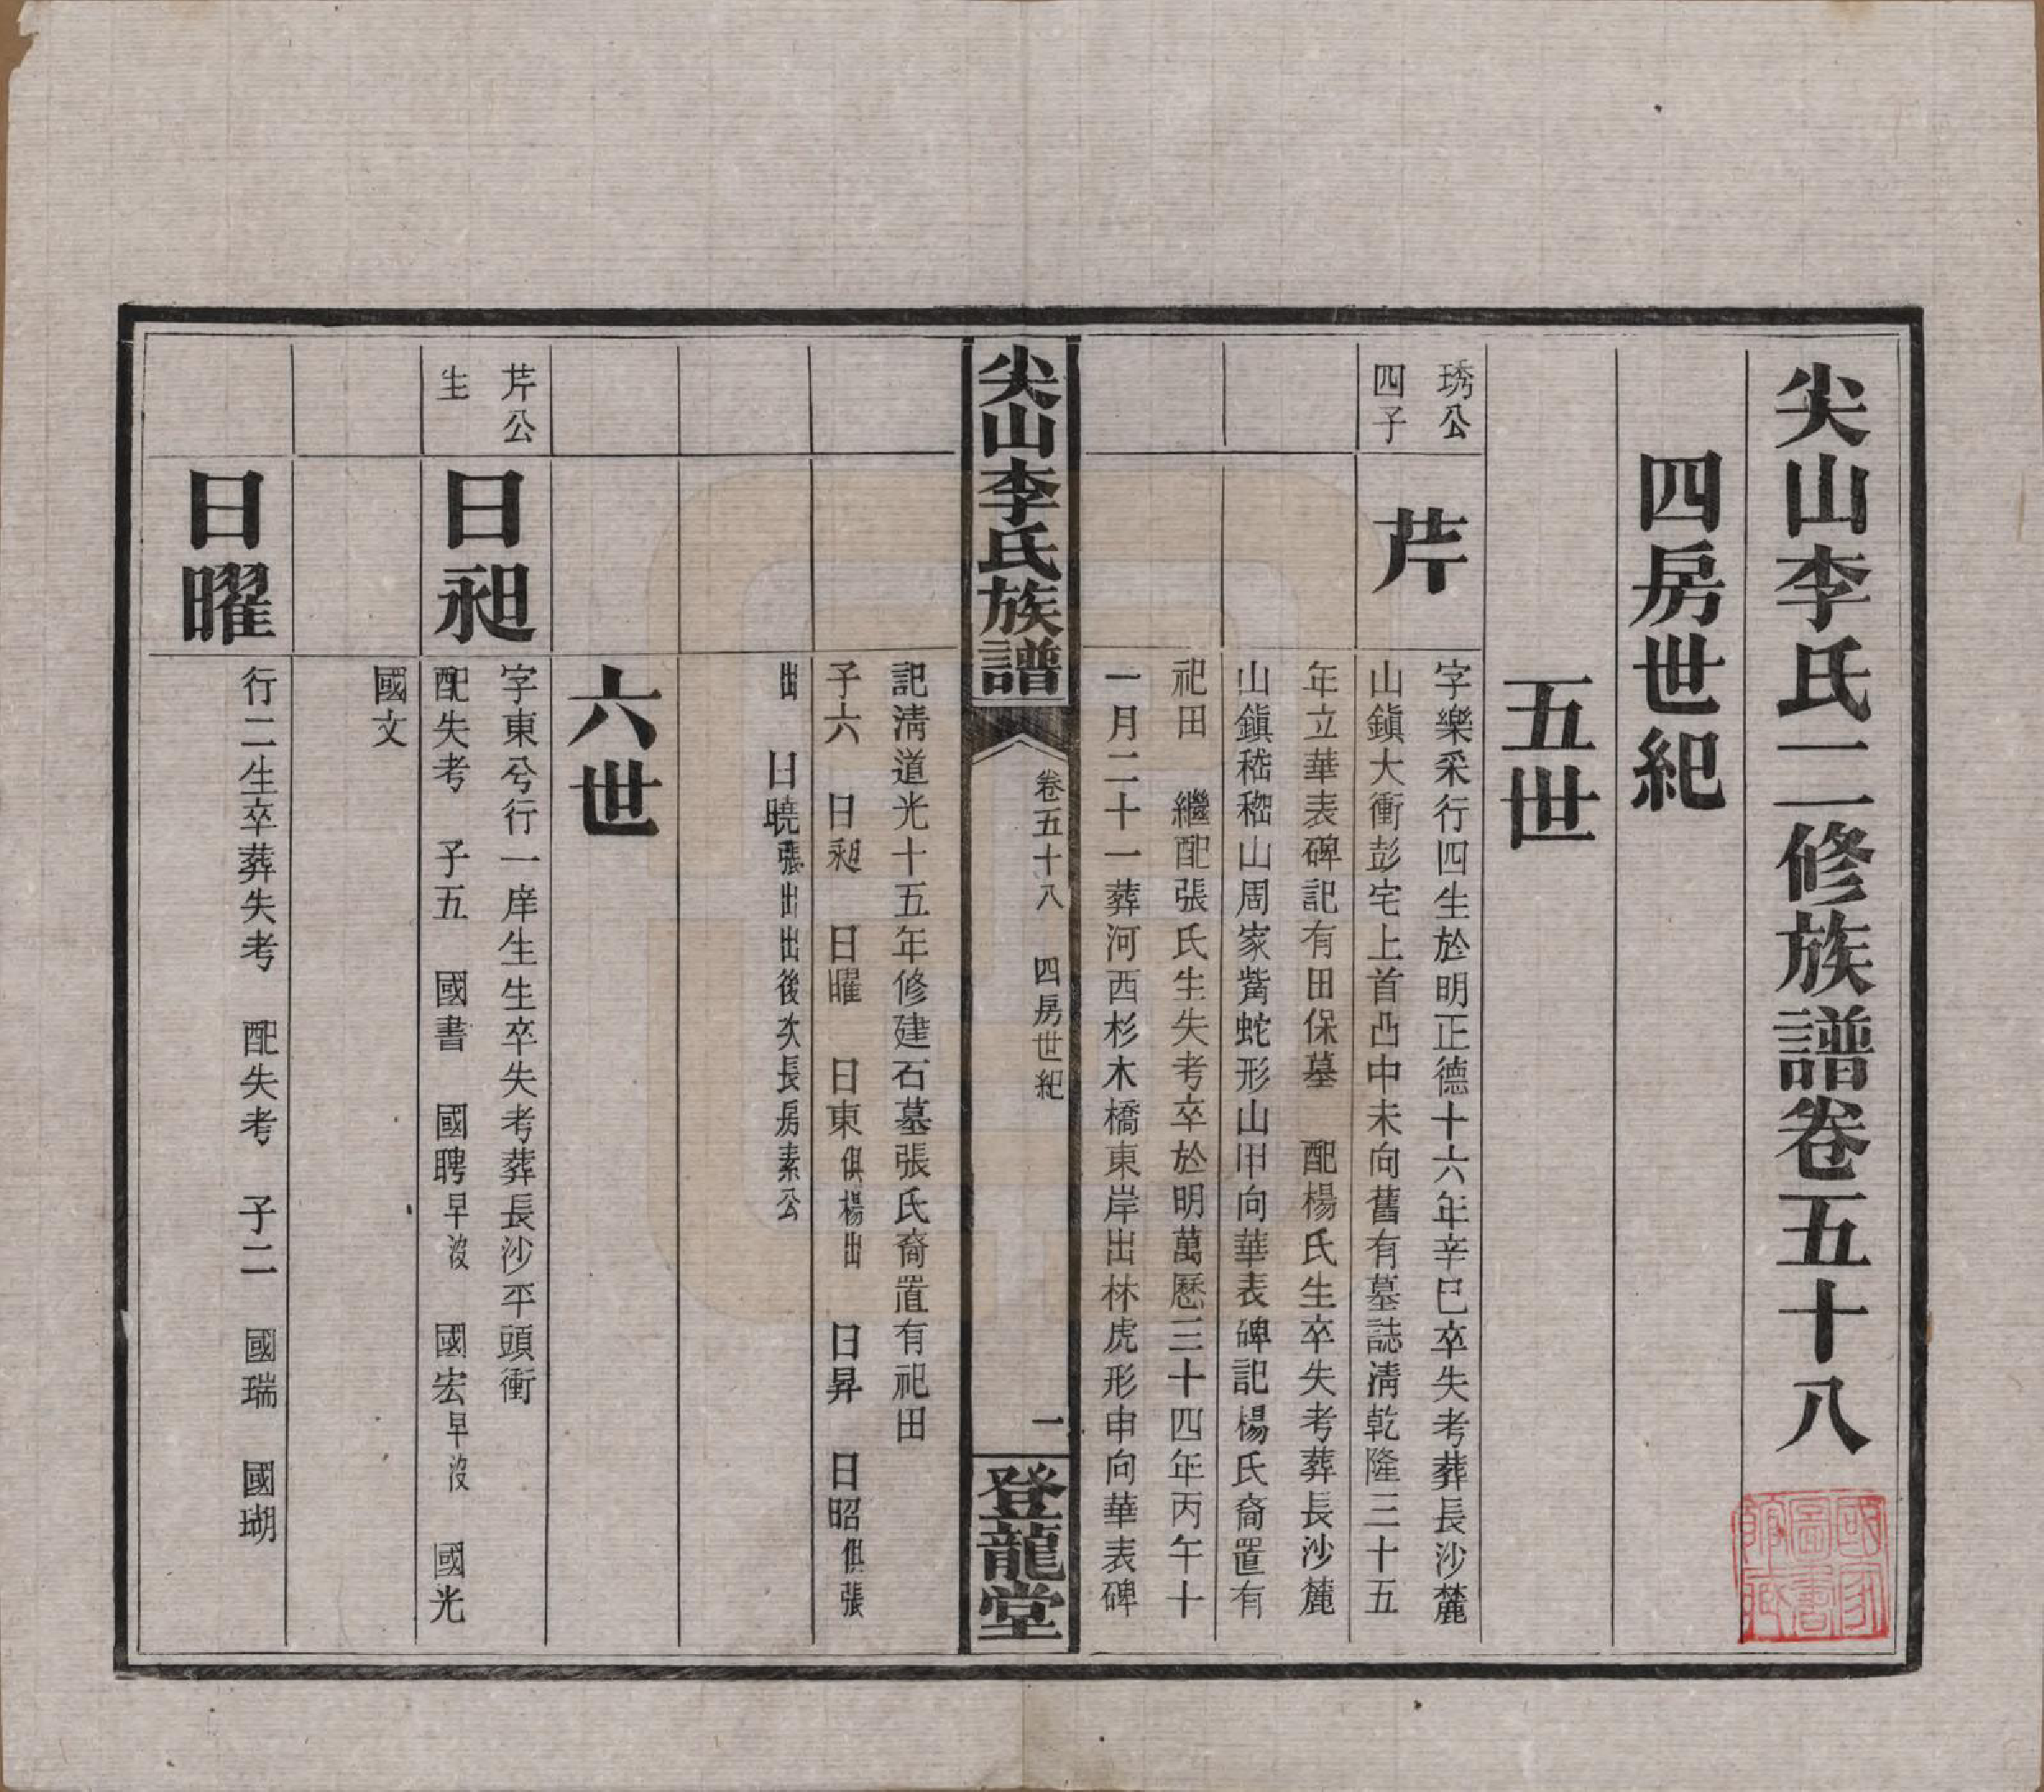 尖山李氏二修族譜卷五十八
四房世紀
五世
琇公
四子
芹
字樂采行四生於明正德十六年辛巳卒失考葬長沙麓
山鎮大衝彭宅上首凸中未向舊有墓誌清乾隆三十五
年立華表碑記有田保墓 配楊氏生卒失考葬長沙麓
山鎮嵇山周家觜蛇形山甲向華表碑記楊氏裔置有
祀田 繼配張氏生失考卒於明萬歷三十四年丙午十
一月二十一葬河西杉木橋東岸出林虎形申向華表碑
尖山李氏族譜
卷五十八 四房世紀
一
登龍堂
記清道光十五年修建石墓張氏裔置有祀田
子六 日昶 日曜 日東俱楊出 日昇 日昭俱張
出 日曉張出出後次長房素公
六世
芹公
生
日昶
字東兮行一庠生生卒失考葬長沙平頭衝
配失考 子五 國書 國聘早沒 國宏早沒 國光
國文
日曜
行二生卒葬失考 配失考 子二 國瑞 國瑚
國家圖書館藏